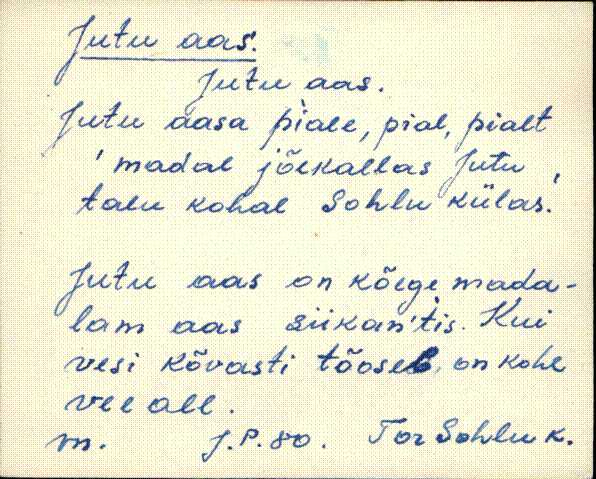 Jutu aas.
Jutu aas.
Jutu aasa piale, pial, pialt
'madal jõekallas Jutu
talu kohal Sohlu külas.'
Jutu aas on kõege mada-
lam aas siikan'tis. Kui
vesi kõvasti tõoseb, on kohe
vee all.
m. J.P.80. Tor Sohlu k.